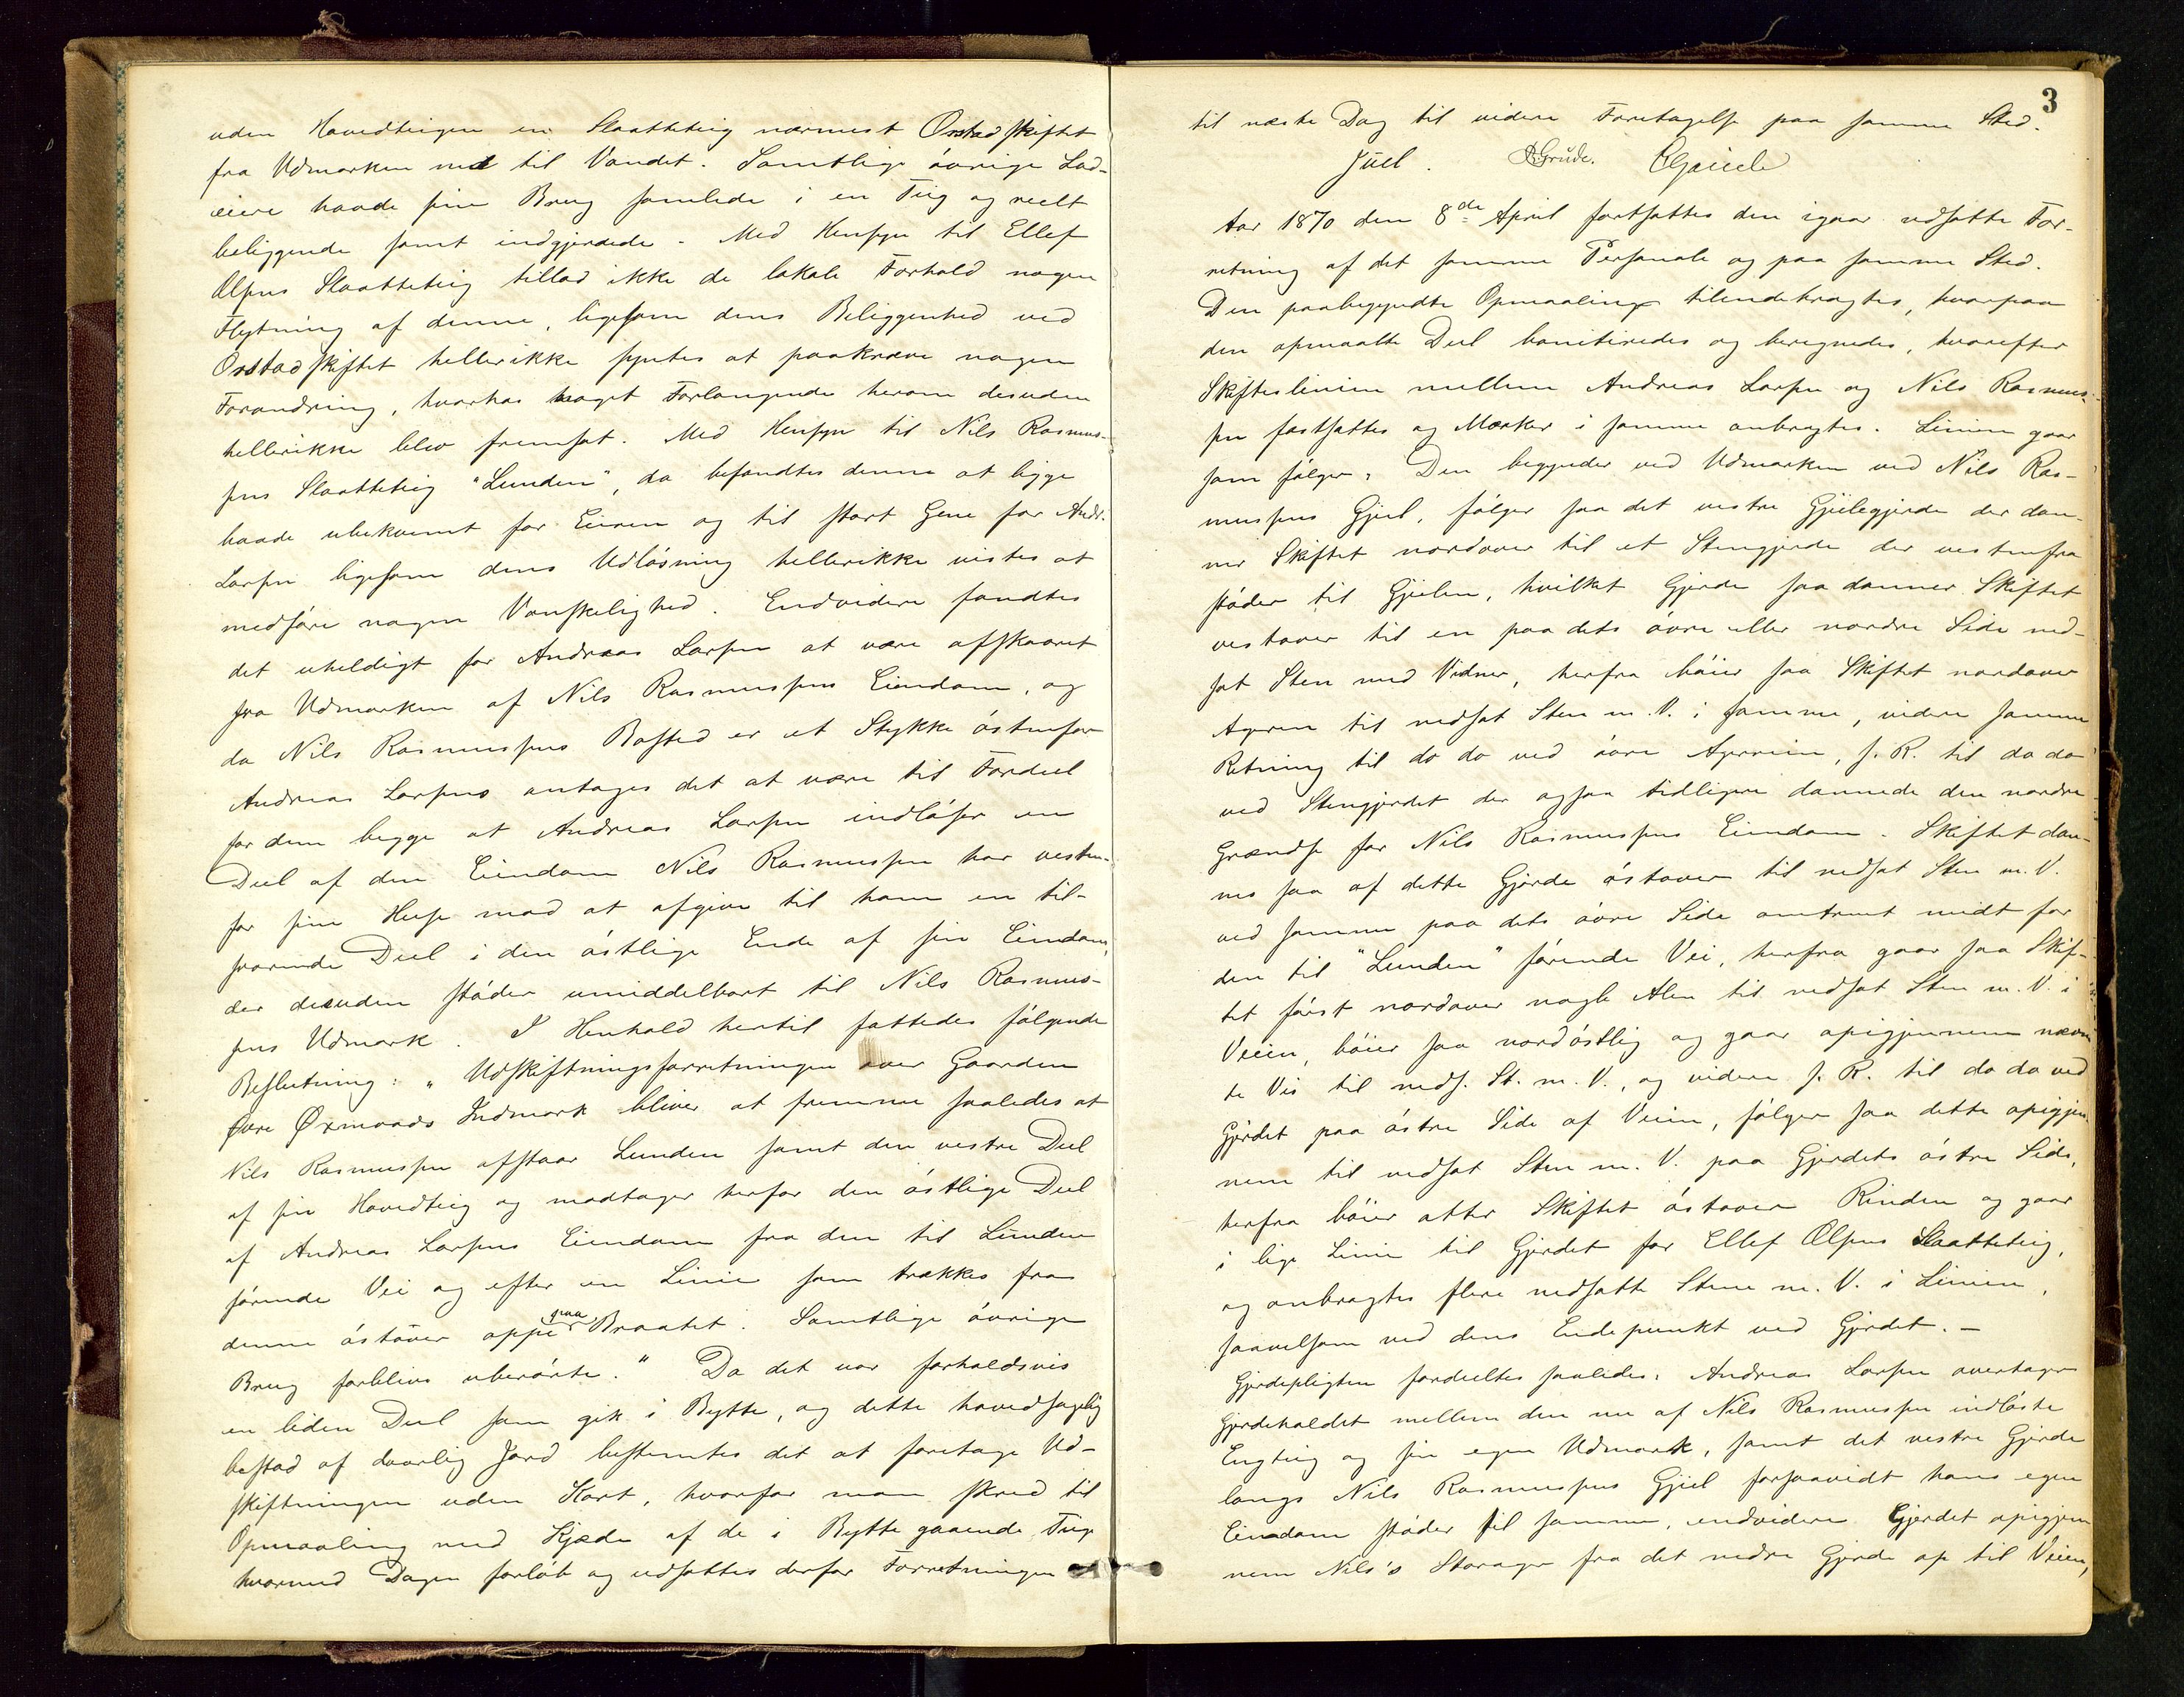 uden Hovedteigen en Slaatteteig nærmest Orstadskiftet
fra Udmarken ned til Vandet. Samtlige øvrige Lod-
eiere havde sine Brug samlede i en Teig og reelt
beliggende samt indgjerdede. Med Hensyn til Ellef
Olsens Slaatteteig tillod ikke de lokale Forhold nogen
Flytning af denne, ligesom dens Beliggenhed ved
Orstadskiftet hellerikke syntes at paakræve nogen
Forandring, hvorhos noget Forlangende herom desuden
hellerikke blev fremsat. Med Hensyn til Nils Rasmus-
sens Slaatteteig "Lunden", da befandtes denne at ligge
baade ubekvemt for Eieren og til stort Gene for Andr.
Larsen ligesom dens Udløsning hellerikke vistes at
medføre nogen Vanskelighed. Endvidere fandtes
det uheldigt for Andreas Larsen at være afskaaret
fra Udmarken af Nils Rasmussens Eiendom, og
da Nils Rasmussens Bosted er et Stykke østenfor
Andreas Larsens antages det at være til Fordeel
for dem begge at Andreas Larsen indløser en
Deel af den Eiendom Nils Rasmussen har vesten-
for sine Huse mod at afgive til ham en til-
svarende Deel i den østlige Ende af sin Eiendom,
der desuden støder umiddelbart til Nils Rasmus-
sens Udmark. I Henhold hertil fattedes følgende
Beslutning: "Udskiftningsforretningen over Gaarden
Øvre Øxnevads Indmark bliver at fremme saaledes at
Nils Rasmussen afstaar Lunden samt den vestre Deel
af sin Hovedteig og modtager herfor den østlige Deel
af Andreas Larsens Eiendom fra den til Lunden
førende Vei og efter en Linie som trækkes fra
denne østover oppe paa Braatet. Samtlige øvrige
Brug forblive uberørte." Da det var forholdsvis
en liden Deel som gik i Bytte, og dette hovedsagelig
bestod af daarlig Jord bestemtes det at foretage Ud-
skiftningen uden Kart, hvorfor man skred til
Opmaaling med Kjæde af de i Bytte gaaende Teige
hvormed Dagen forløb og udsattes derfor Forretningen
3
til næste Dag til videre Foretagelse paa samme Sted.
Juel. Grude.
Aar 1870 den 8de April fortsattes den igaar udsatte For-
retning af det samme Personale og paa samme Sted.
Den paabegyndte Opmaaling tilendebragtes, hvorpaa
den opmaalte Deel boniteredes og beregnedes, hvorefter
Skifteslinien mellem Andreas Larsen og Nils Rasmus-
sen fastsattes og Mærker i samme anbragtes. Linien gaar
som følger: Den begynder ved Udmarken ved Nils Ras-
mussens Gjeil, følger saa det vestre Gjeilegjerde der dan-
ner Skiftet nordover til et Stengjerde der vestenfra
støder til Gjeilen, hvilket Gjerde saa danner Skiftet
vestover til en paa dets øvre eller nordre Side ned-
sat Sten med Vidner, herfra bøier saa Skiftet nordover
Ageren til nedsat Sten m. V. i samme, videre samme
Retning til do do ved øvre Agerrein, s. R. til do do
ved Stengjerdet der ogsaa tidligere dannede den nordre
Grændse for Nils Rasmussens Eiendom. Skiftet dan-
nes saa af dette Gjerde østover til nedsat Sten m. V.
ved samme paa dets øvre Side omtrent midt for
den til "Lunden" førende Vei, herfra gaar saa Skif-
tet først nordover nogle Alen til nedsat Sten m. V. i
Veien, bøier saa nordøstlig og gaar opigjennem nævn
te Vei til neds. St. m. V., og videre s. R. til do do ved
Gjerdet paa østre Side af Veien, følger saa dette opigjen
nem til nedsat Sten m. V. paa Gjerdets østre Side,
herfra bøier atter Skiftet østover Rinden og gaar
i lige Linie til Gjerdet for Ellef Olsens Slaatteteig,
og anbragtes flere nedsatte Stene m. V. i Linien,
saavelsom ved dens Endepunkt ved Gjerdet. —
Gjerdepligten fordeeltes saaledes: Andreas Larsen overtager
Gjerdeholdet mellem den nu af Nils Rasmussen indløste
Engteig og sin egen Udmark, samt det vestre Gjerde
langs Nils Rasmussens Gjeil forsaavidt hans egen
Eiendom støder til samme, endvidere Gjerdet opigjen
nem Nils's Storager fra det nedre Gjerde op til Veien,